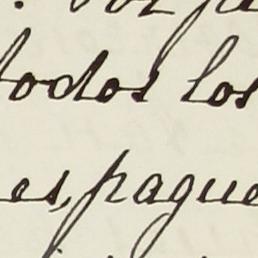 todos los
es, pague